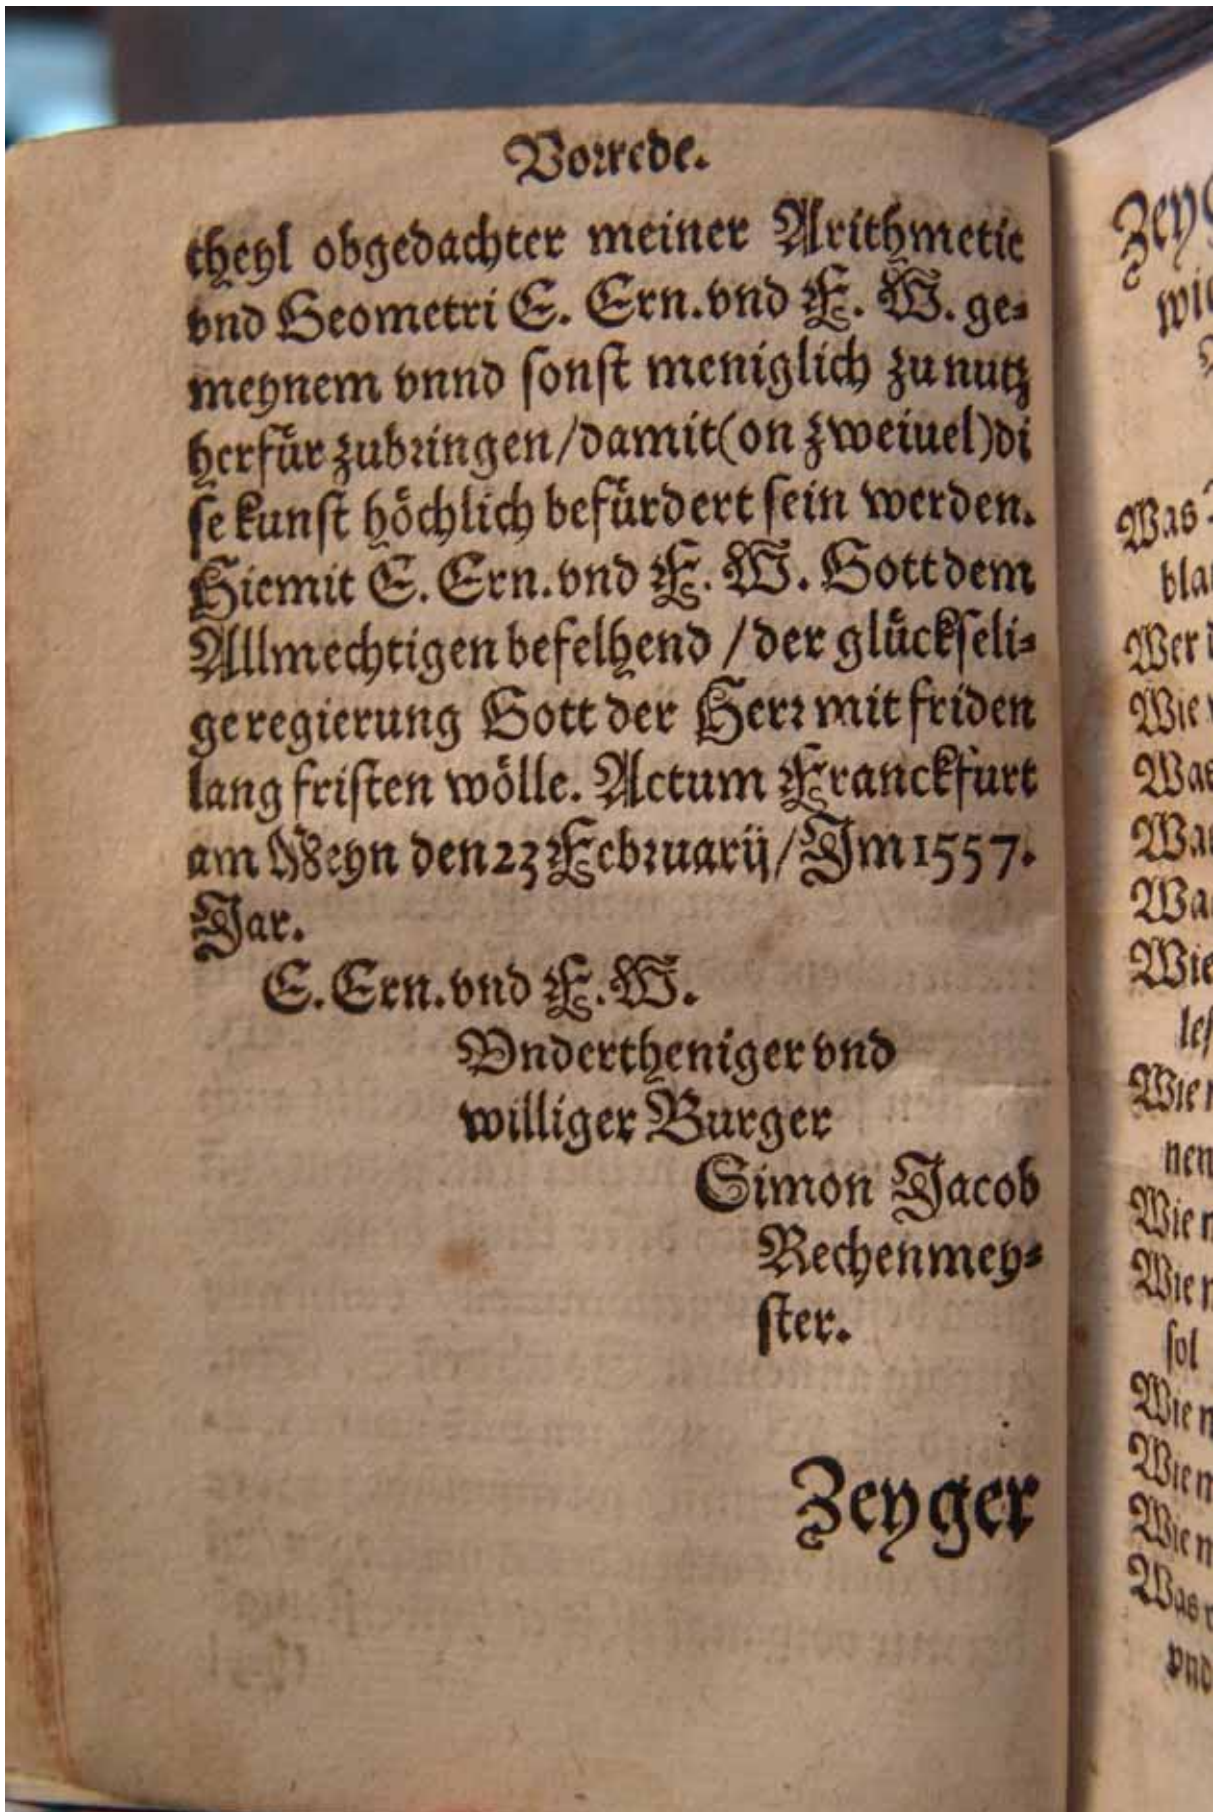 Vorrede.
theyl obgedachter meiner Arithmetic
vnd Geometri E. Ern. vnd F. W. ge-
meynem vnnd sonst meniglich zu nutz
herfür zubringen / damit (on zweiuel) di
se kunst höchlich befürdert sein werden.
Hiemit E. Ern. vnd F. W. Gott dem
Allmechtigen befelhend / der glückseli-
ge regierung Gott der Herr mit friden
lang fristen wölle. Actum Franckfurt
am Meyn den 23 Februarij / Im 1557.
Jar.
E. Ern. vnd F. W.
Vndertheniger vnd
williger Burger
Simon Jacob
Rechenmey-
ster.
Zeyger
Was
Wer
Wie
Wie
Wie
nen
Wie
Wie
sol
Wie
Wie
Wie
Was
vnd